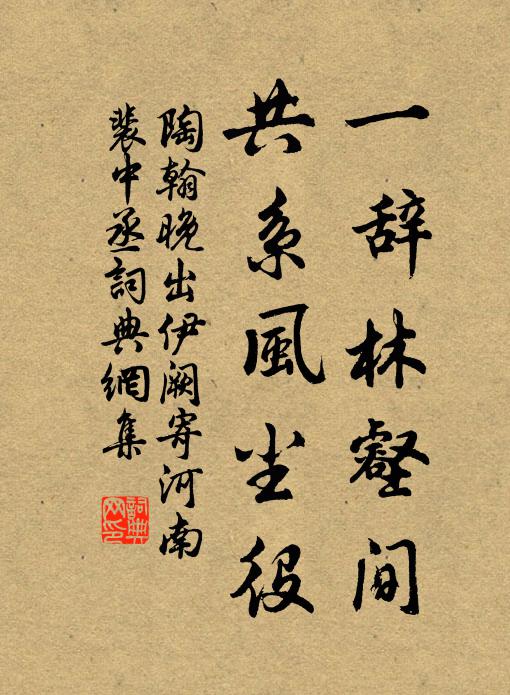 一辞林壑间
共系風尘役
陶翰晚出伊阙寄河南
裴中丞詞典網集
詞典网印